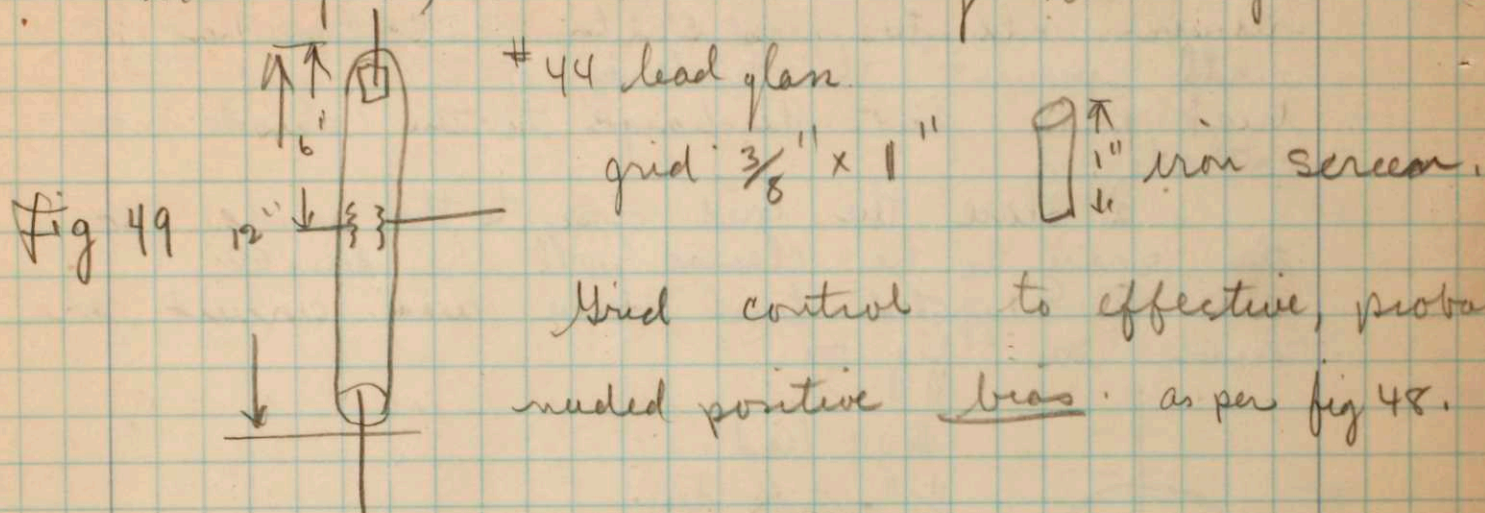 # 44 lead glass.
6'
grid 3/8" x 1"
1" iron screen.
Fig 49 12"
Grid control to effective, proba
nuded positive bias. as per fig 48.